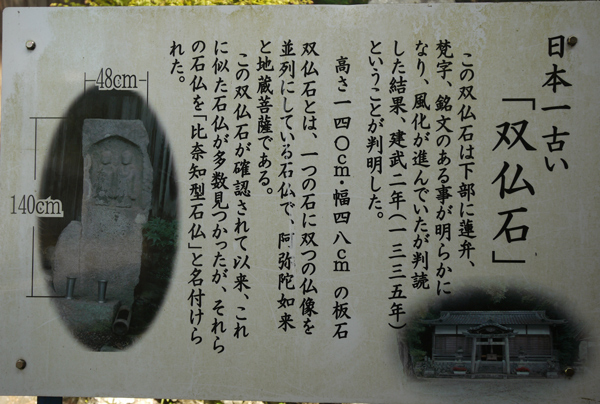 日本一古い
「双仏石」
この双仏石は下部に蓮弁、
梵字、銘文のある事が明らかに
なり、風化が進んでいたが判読
した結果、建武二年(一三三五年)
ということが判明した。
高さ一四〇cm・幅四八cm の板石
双仏石とは、一つの石に双つの仏像を
並列にしている石仏で、阿弥陀如来
と地蔵菩薩である。
この双仏石が確認されて以来、これ
に似た石仏が多数見つかったが、それら
の石仏を「比奈知型石仏」と名付けら
れた。
48cm
140cm